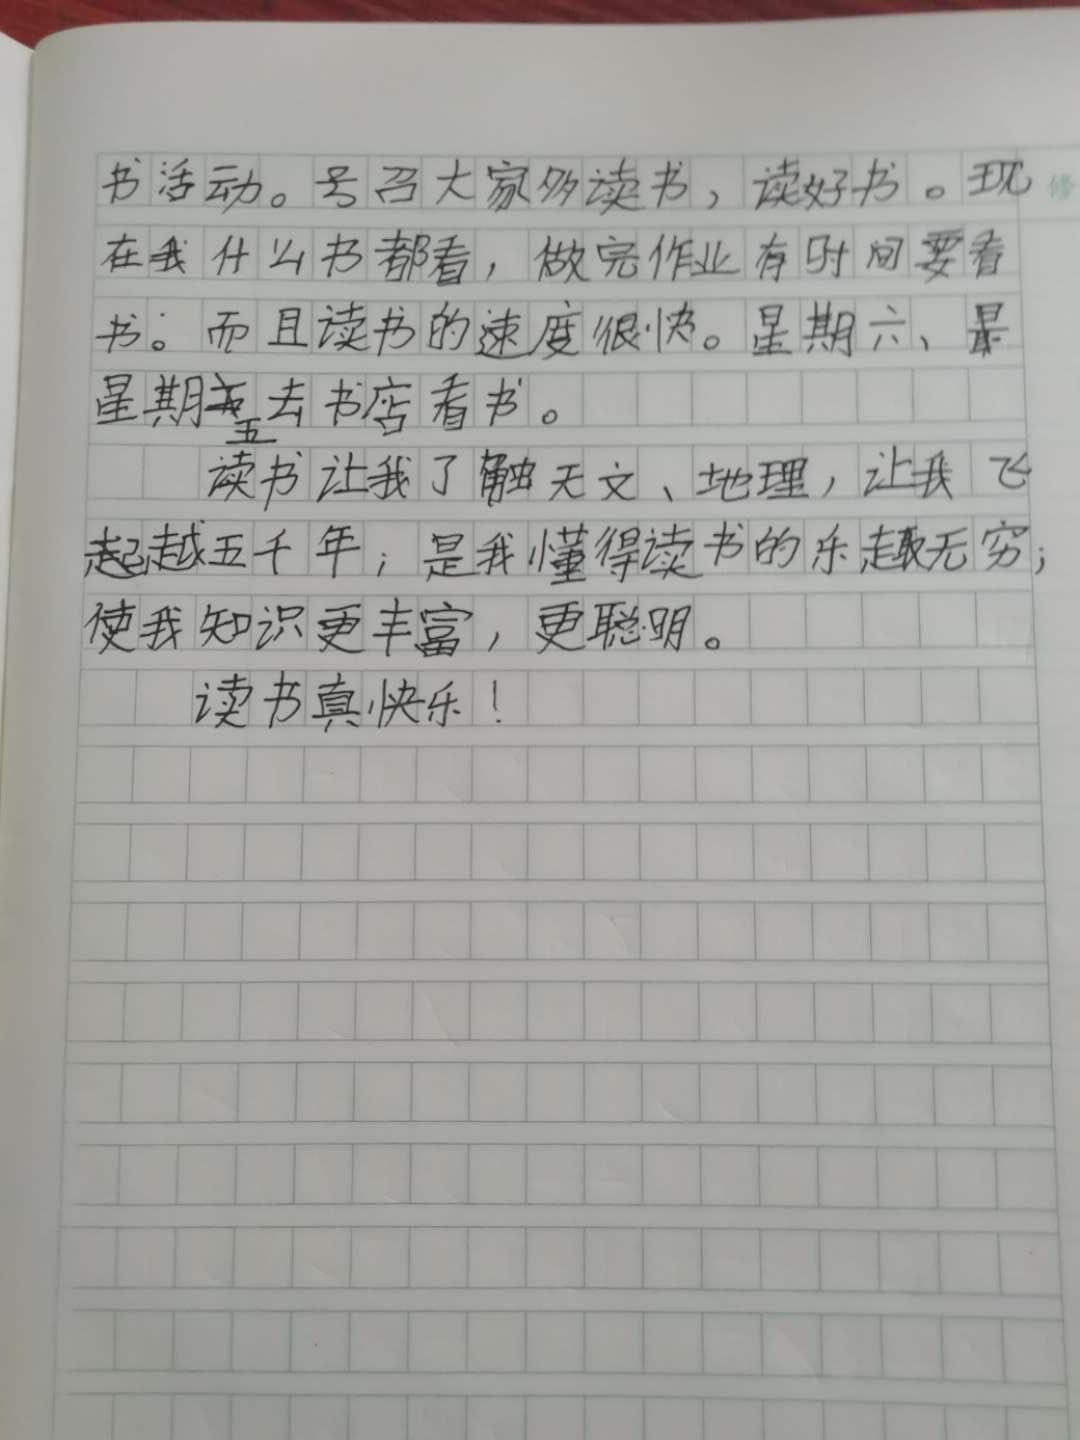 书活动。号召大家多读书，读好书。现
修
在我什么书都看，做完作业有时间要看
书。而且读书的速度很快。星期六、最
星期五去书店看书。
读书让我了触天文、地理，让我飞
起越五千年；是我懂得读书的乐趣无穷；
使我知识更丰富，更聪明。
读书真快乐！